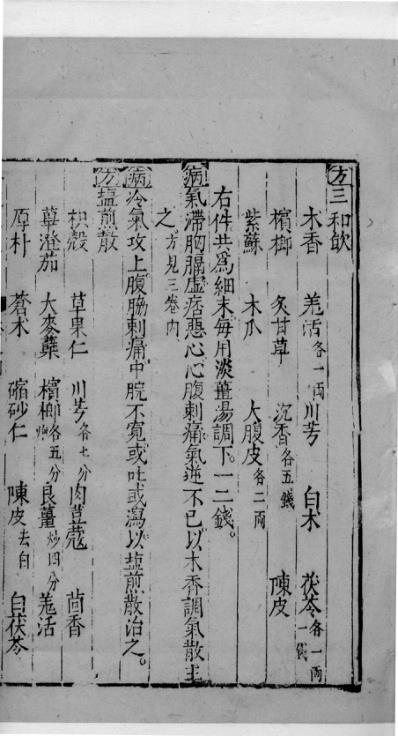 方三和飲
木香　羌活各一兩川芎　白木　茯苓各一兩
檳榔　炙甘草　沉香各五錢　陳皮
紫蘇　木瓜　大腹皮各二兩
右件共爲細末每用淡薑湯調下一二錢。
病氣滯胸膈虛痞惡心心腹刺痛氣逆不已以木香調氣散主
之。方見三卷内
病冷氣攻上腹脇刺痛中脘不寬或吐或瀉以塩煎散治之。
方塩煎散
枳殼　草果仁　川芎各七分肉豆蔻　茴香
蓽澄茄　大麥蘖　檳榔各五分良薑炒四分羗活
厚朴　蒼木　縮砂仁　陳皮去白　白茯苓